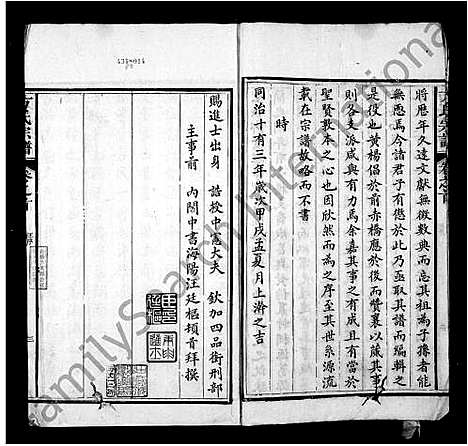 方氏宗譜
卷之首
將歷年久遠文獻無徵數典而忘其祖為子孫者能
無恧焉今諸君子有慨於此乃亟取其譜而編輯之
是役也黃楊倡於前赤橋應於後而贊襄以蕆其事
則又各與有力焉余嘉其事之有成且有當於
聖賢教本之心也因欣然而為之序至其世系源流
載在宗譜故略而不書
時
同治十有三年歲次甲戌孟夏月上澣之吉
賜進士出身 誥授中憲大夫 欽加四品銜刑部
主事前 內閣中書海陽汪廷樞頓首拜撰
方氏宗譜
卷之首
FamilySearch International